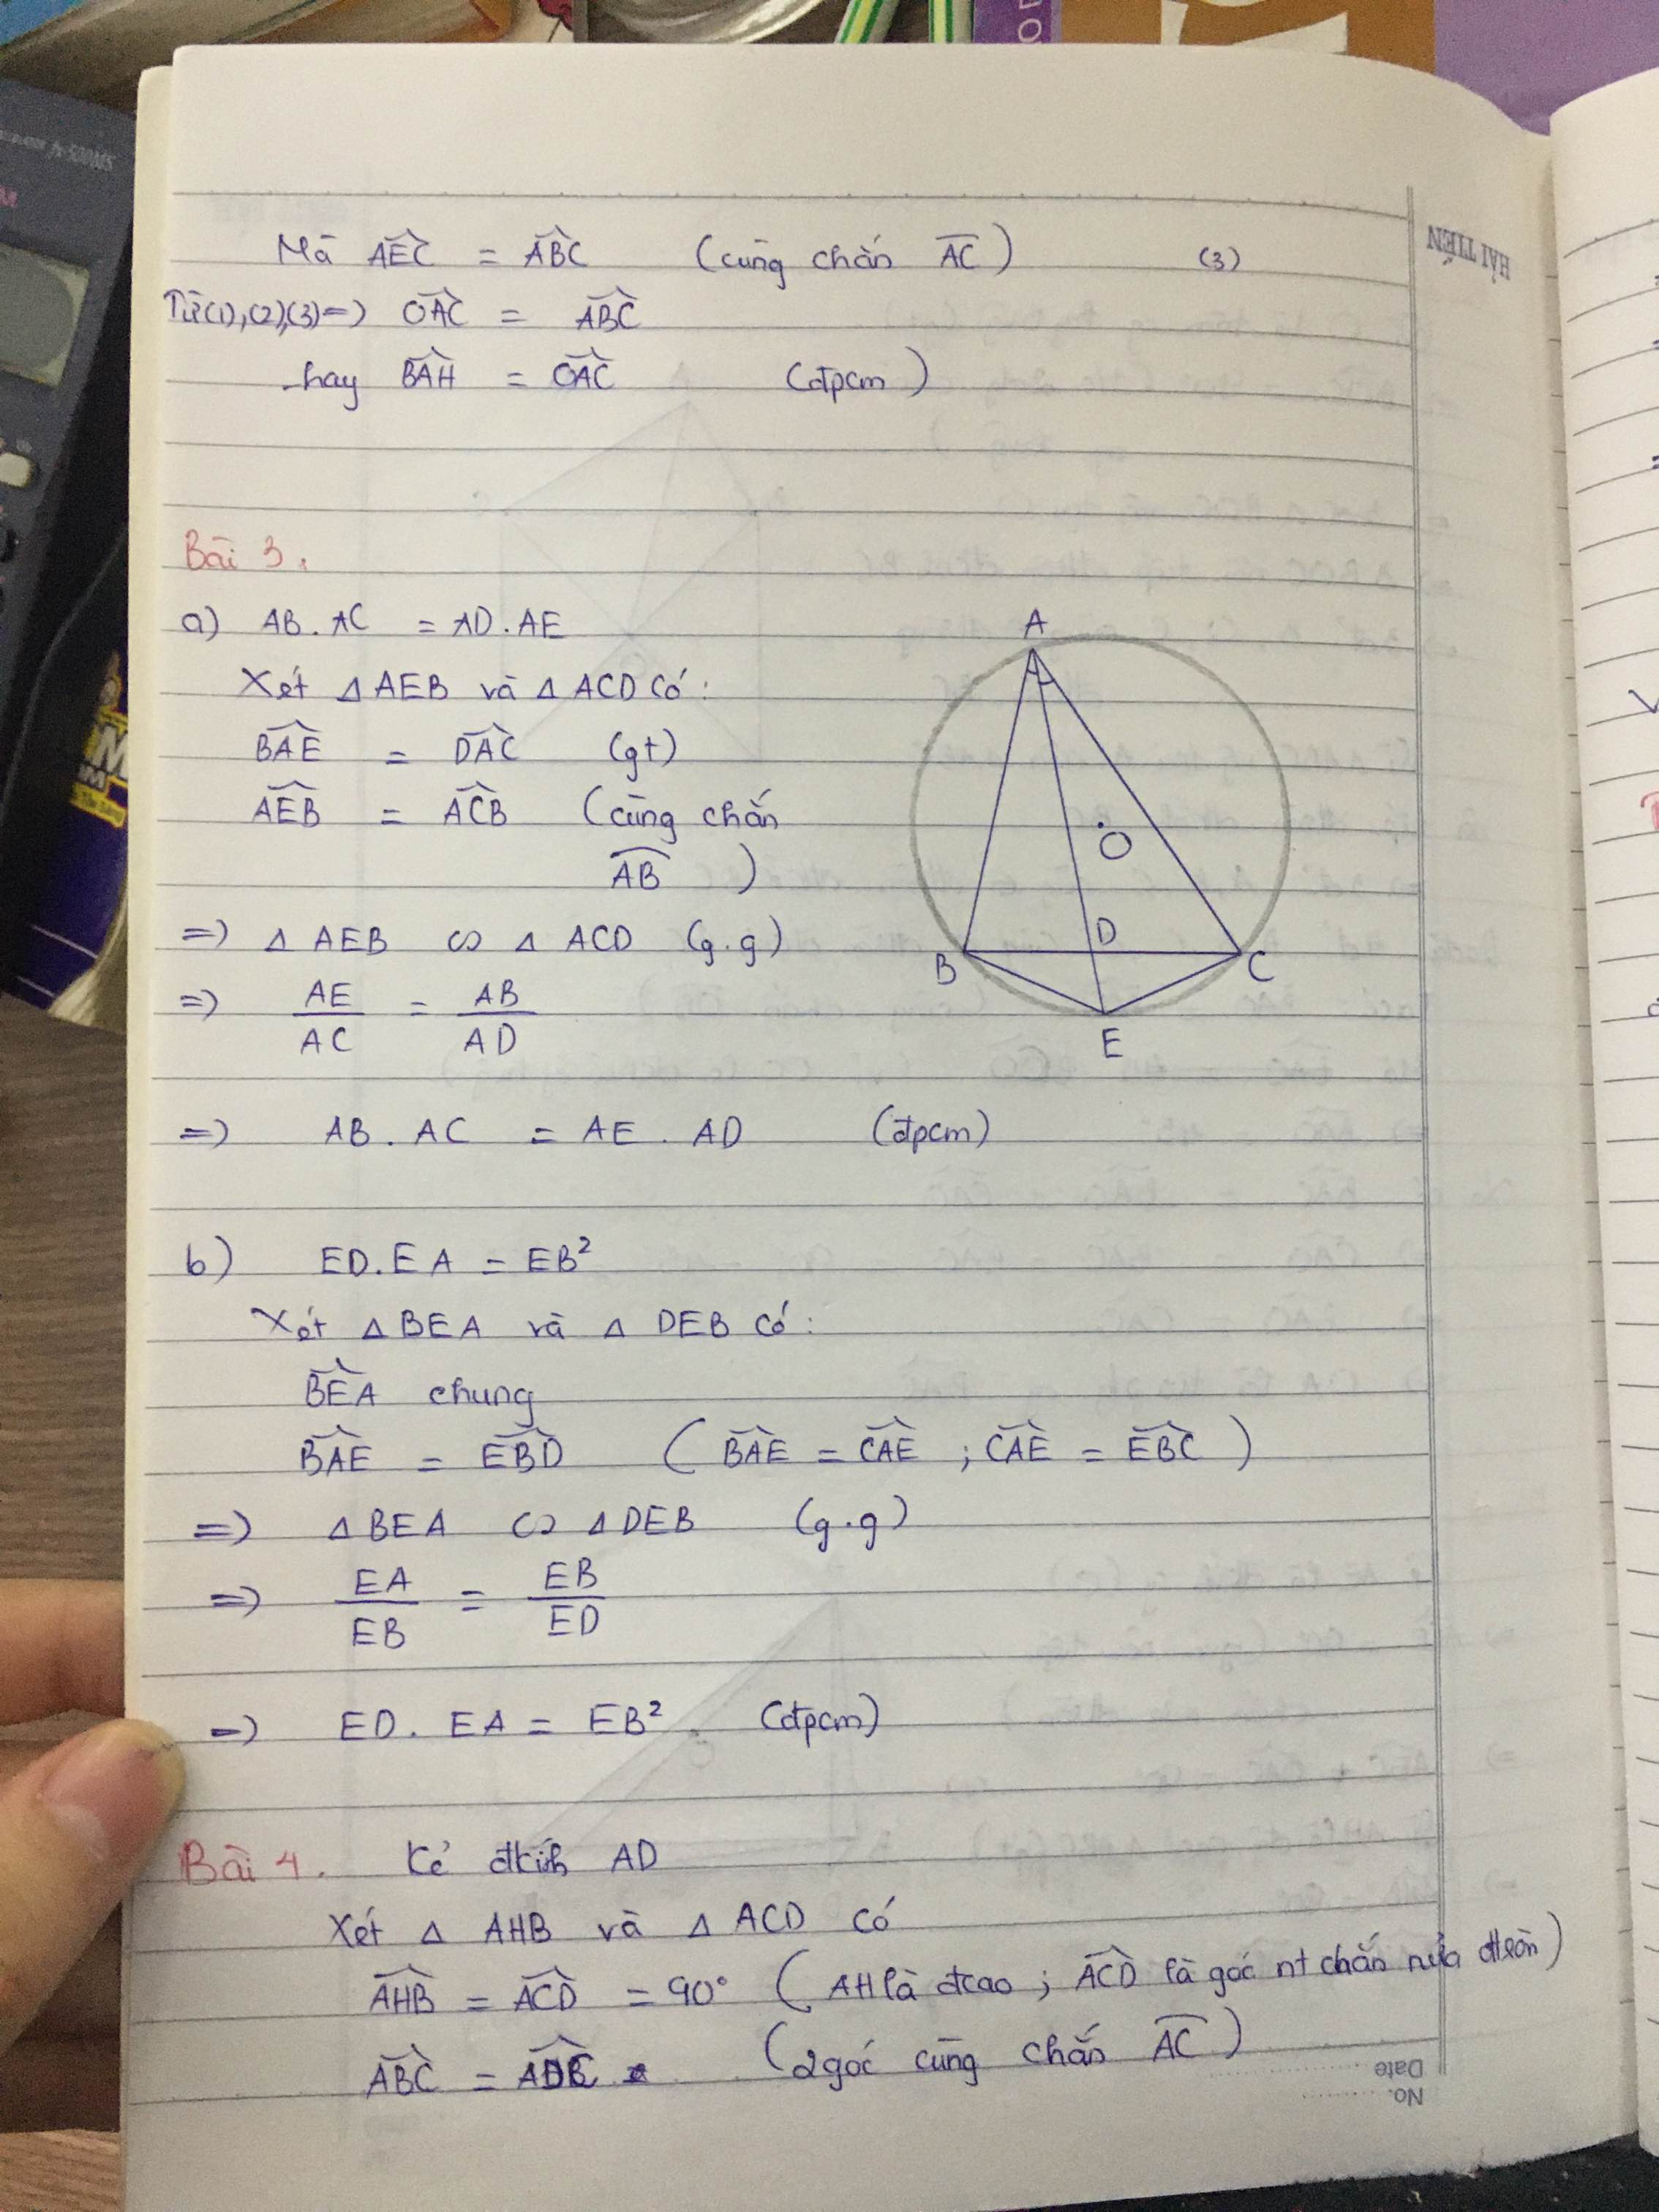 HẢI TIẾN
Mà AEC = ABC (cùng chắn AC) (3)
Từ (1),(2),(3) => OAC = ABC
hay BAH = OAC (đpcm)
Bài 3.
a) AB.AC = AD.AE
Xét △AEB và △ACD có:
BAE = DAC (gt)
AEB = ACB (cùng chắn
AB)
=> △AEB ∽ △ACD (g.g)
=> AE/AC = AB/AD
=> AB.AC = AE.AD (đpcm)
A
O
D
B
C
E
b) ED.EA = EB²
Xét △BEA và △DEB có:
BEA chung
BAE = EBD (BAE = CAE ; CAE = EBC)
=> △BEA ∽ △DEB (g.g)
=> EA/EB = EB/ED
=> ED.EA = EB². (đpcm)
Bài 4. Kẻ đkính AD
Xét △AHB và △ACD có
AHB = ACD = 90° (AH là đcao ; ACD là góc nt chắn nửa đtròn)
ABC = ADC (2 góc cùng chắn AC)
Date
No.